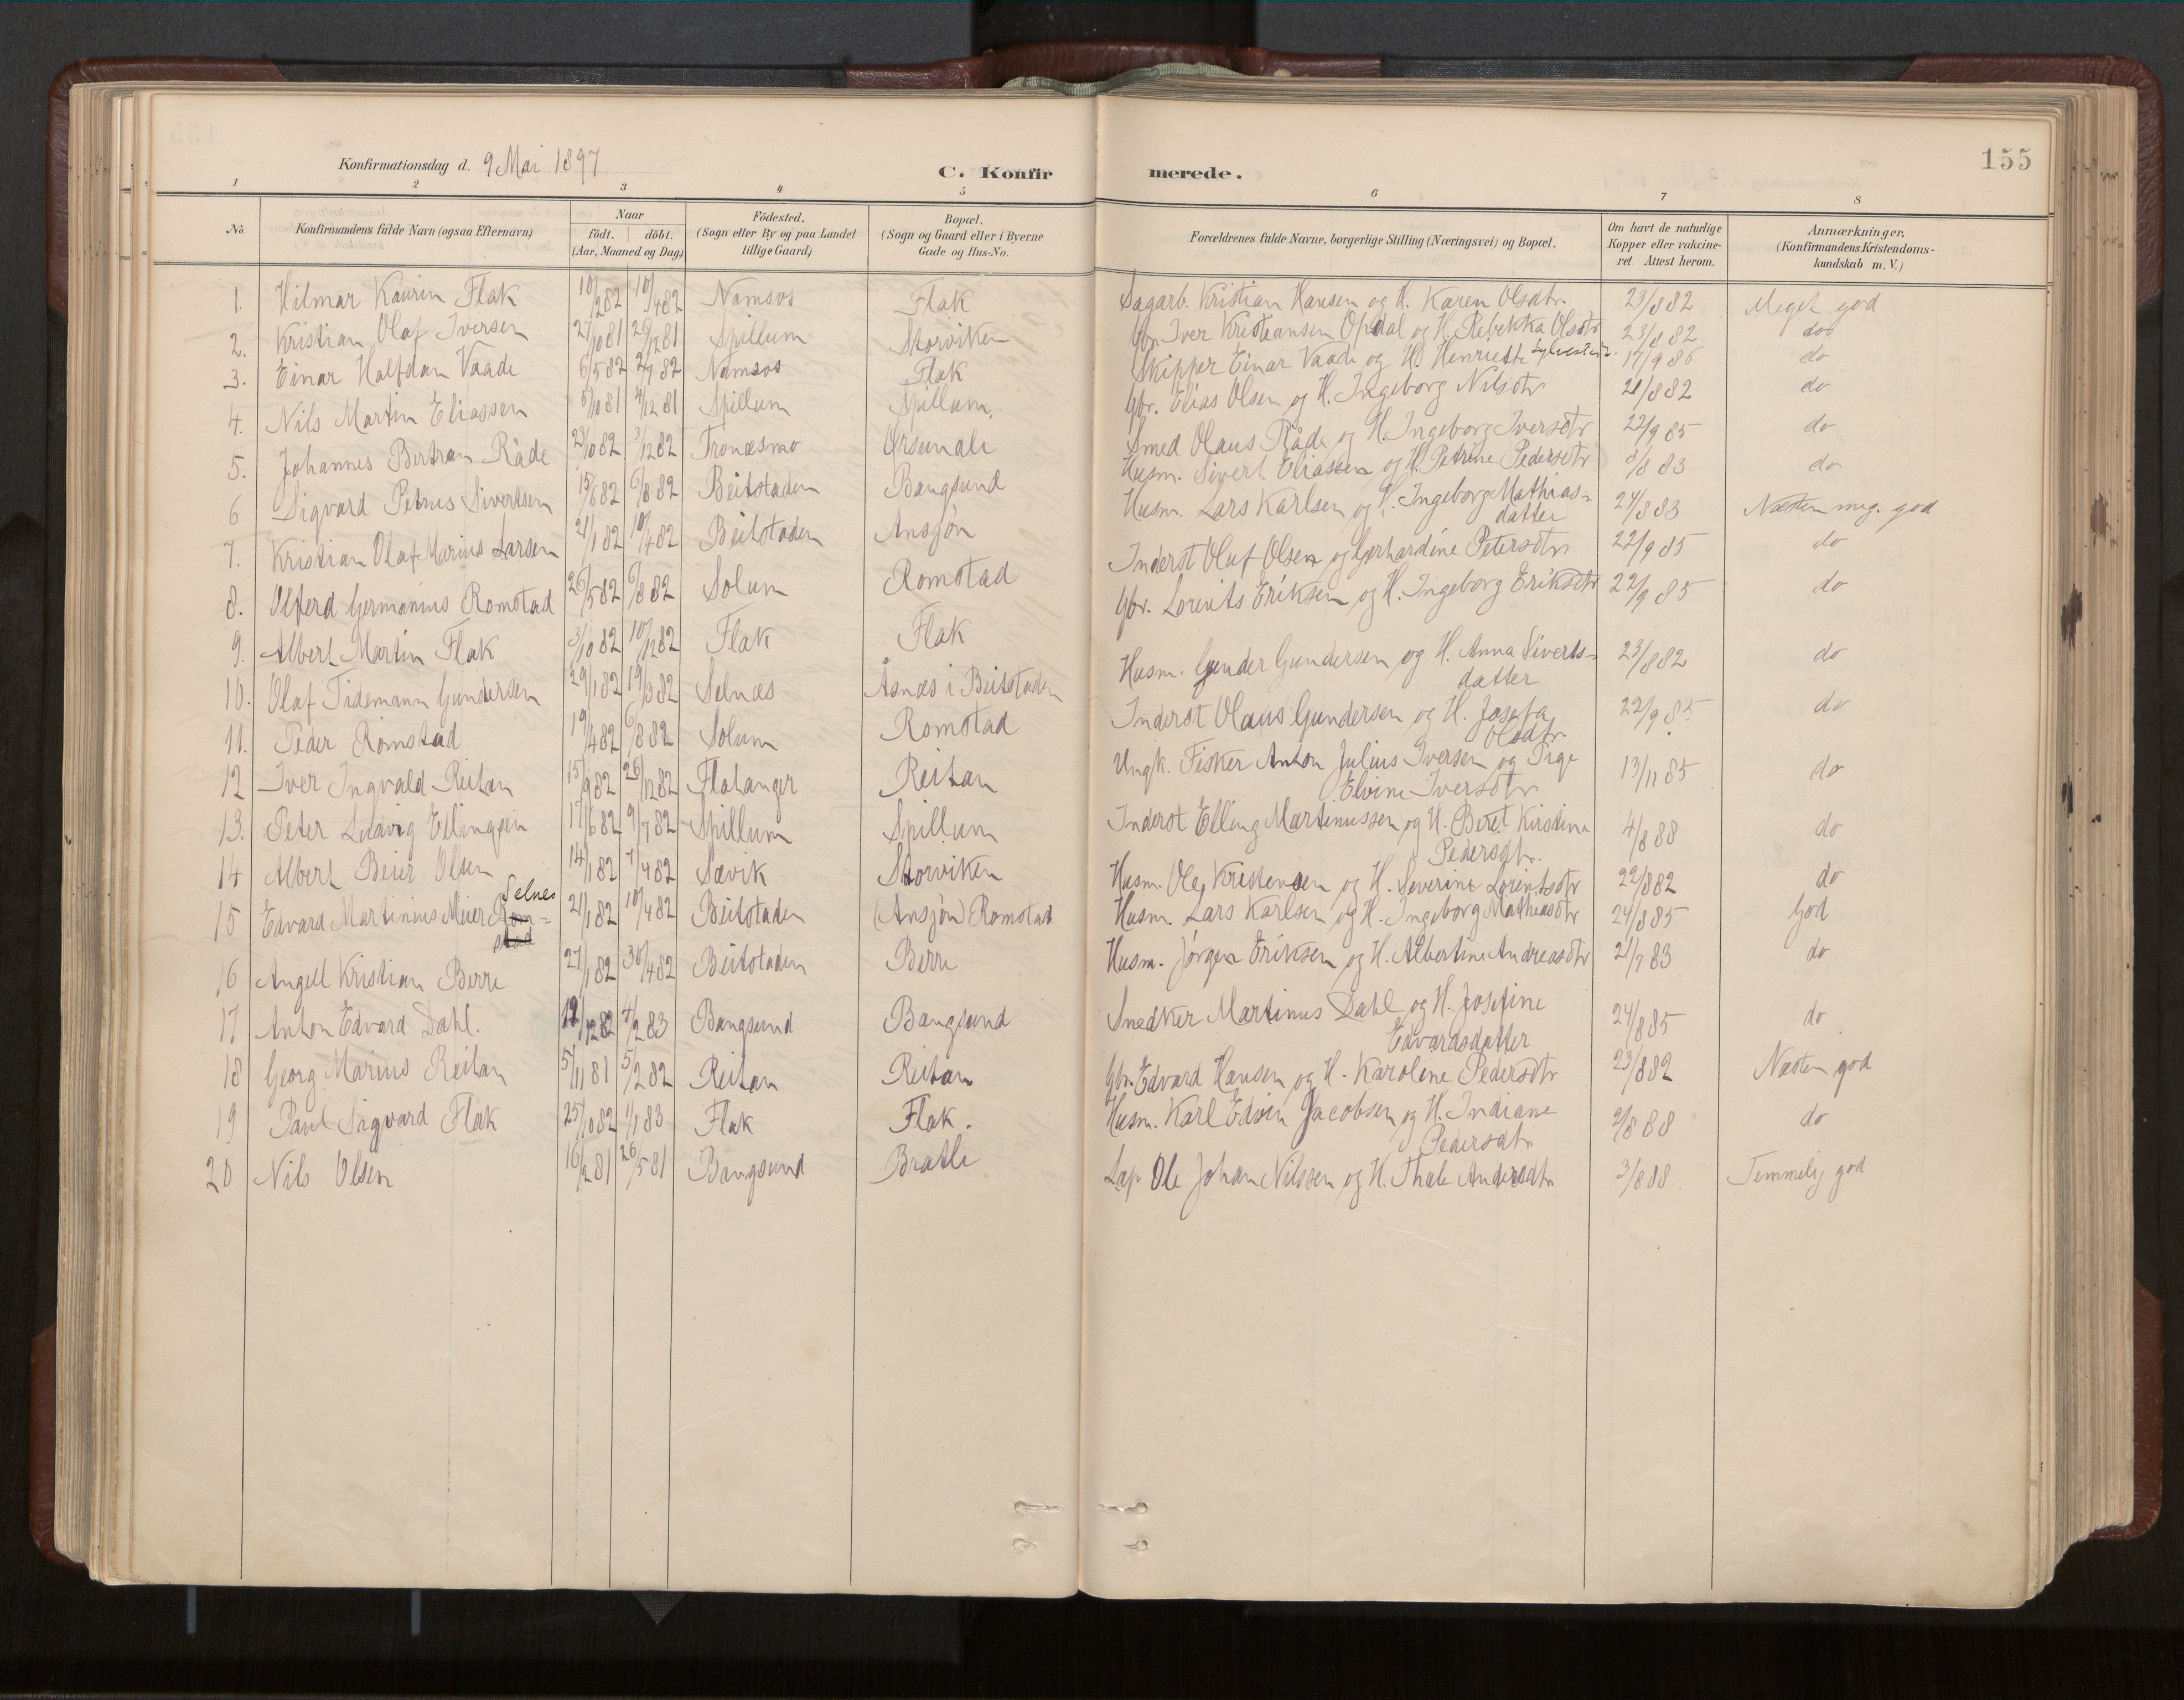 155
Konfirmationsdag d. 9 Mai 1897
C. Konfirmerede.
1 2 3 4 5 6 7 8
No. Konfirmandens fulde Navn (ogsaa Efternavn) Naar födt. döbt. (Aar, Maaned og Dag) Födested. (Sogn eller By og paa Landet tillige Gaard) Bopæl. (Sogn og Gaard eller i Byerne Gade og Hus-No. Forældrenes fulde Navne, borgerlige Stilling (Næringsvei) og Bopæl. Om havt de naturlige Kopper eller vakcineret. Attest herom. Anmærkninger. (Konfirmandens Kristendomskundskab m. V.)
1. Hilmar Kaurin Flak 10/2 82 10/4 82 Namsos Flak Sagarb. Kristian Hansen og H. Karen Olsdtr. 23/8 82 Meget god
2. Kristian Olaf Iversen 27/10 81 26/12 81 Spillum Storviken Gbr. Iver Kristiansen Opdal og H. Rebekka Olsdtr 23/8 82 do
3. Einar Halfdan Vaade 6/5 82 2/7 82 Namsos Flak Skipper Einar Vaade og H. Henriette 17/9 86 do
4. Nils Martin Eliassen 5/10 81 4/12 81 Spillum Spillum. Gbr. Elias Olsen og H. Ingeborg Nilsdtr 21/8 82 do
5. Johannes Bertran Råde 23/10 82 3/12 82 Tronæsmo Smed Olaus Råde og H. Ingeborg Iversdtr 22/9 85 do
6 Sigvard Petrus Sivertsen 15/6 82 6/8 82 Beitstaden Bangsund Husm. Sivert Eliassen og H. Petrine Pedersdtr 8/8 83 do
7. Kristian Olaf Marius Larsen 21/1 82 10/4 82 Beitstaden Ansjön Husm. Lars Karlsen og H. Ingeborg Mathias-
datter 24/8 83 Næsten meg. god
8. Olferd Germanius Romstad 26/5 82 6/8 82 Solum Romstad Inderst Oluf Olsen og Gerhardine Petersdtr 22/9 85 do
9. Albert Martin Flak 3/10 82 10/12 82 Flak Flak Gbr. Lorents Eriksen og H. Ingeborg Eriksdtr 22/9 85 do
10. Olaf Tidemann Gundersen 29/1 82 19/3 82 Selnæs Åsnæs i Beitstaden Husm. Gunder Gundersen og H. Anna Siverts-
datter 23/8 82 do
11. Peder Romstad 19/4 82 6/8 82 Solum Romstad Inderst Olaus Gundersen og H. Josefa
Olsdtr. 22/9 85 do
12 Iver Ingvald Reitan 15/9 82 26/12 82 Flatanger Reitan Ungk. Fisker Anton Julius Iversen og Pige
Elvine Iversdtr 13/11 85 do
13. Peter Ludvig Ellingsen 17/6 82 9/7 82 Spillum Spillum Inderst Elling Martinussen og H. Beret Kirstina
Pedersdtr. 4/8 88 do
14 Albert Beier Olsen 14/1 82 7/4 82 Sævik Storviken Husm. Ole Kristensen og H. Severine Lorintsdtr 22/8 82 do
Selnes
15 Edvard Martinius Meier Rom-
stad 21/1 82 10/4 82 Beitstaden (Ansjön) Romstad Husm. Lars Karlsen og H. Ingeborg Mathiasdtr 24/8 85 God
16 Angell Kristian Berre 27/1 82 30/4 82 Beitstaden Berre Husm. Jörgen Eriksen og H. Albertine Andreasdtr 21/7 83 do
17 Anton Edvard Dahl. /12 82 4/2 83 Bangsund Bangsund Snedker Martinus Dahl og H. Josefine
Edvardsdatter 24/8 85 do
18 Georg Marius Reitan 5/11 81 5/2 82 Reitan Reitan Gbr. Edvard Hansen og H. Karoline Pedersdtr 23/8 82 Næsten god
19 Paul Sigvard Flak 25/10 82 1/1 83 Flak Flak. Husm. Karl Edvin Jacobsen og H. Indiane
Pedersdtr 2/8 88 do
20 Nils Olsen 16/2 81 26/5 81 Bangsund Bratli Lap Ole Johan Nilssen og H. Thale Andersdtr 3/8 88 Temmelig god